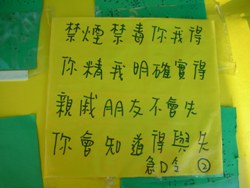 禁煙禁毒你我得
你精我明確實得
親戚朋友不會失
你會知道得與失
急D全
②